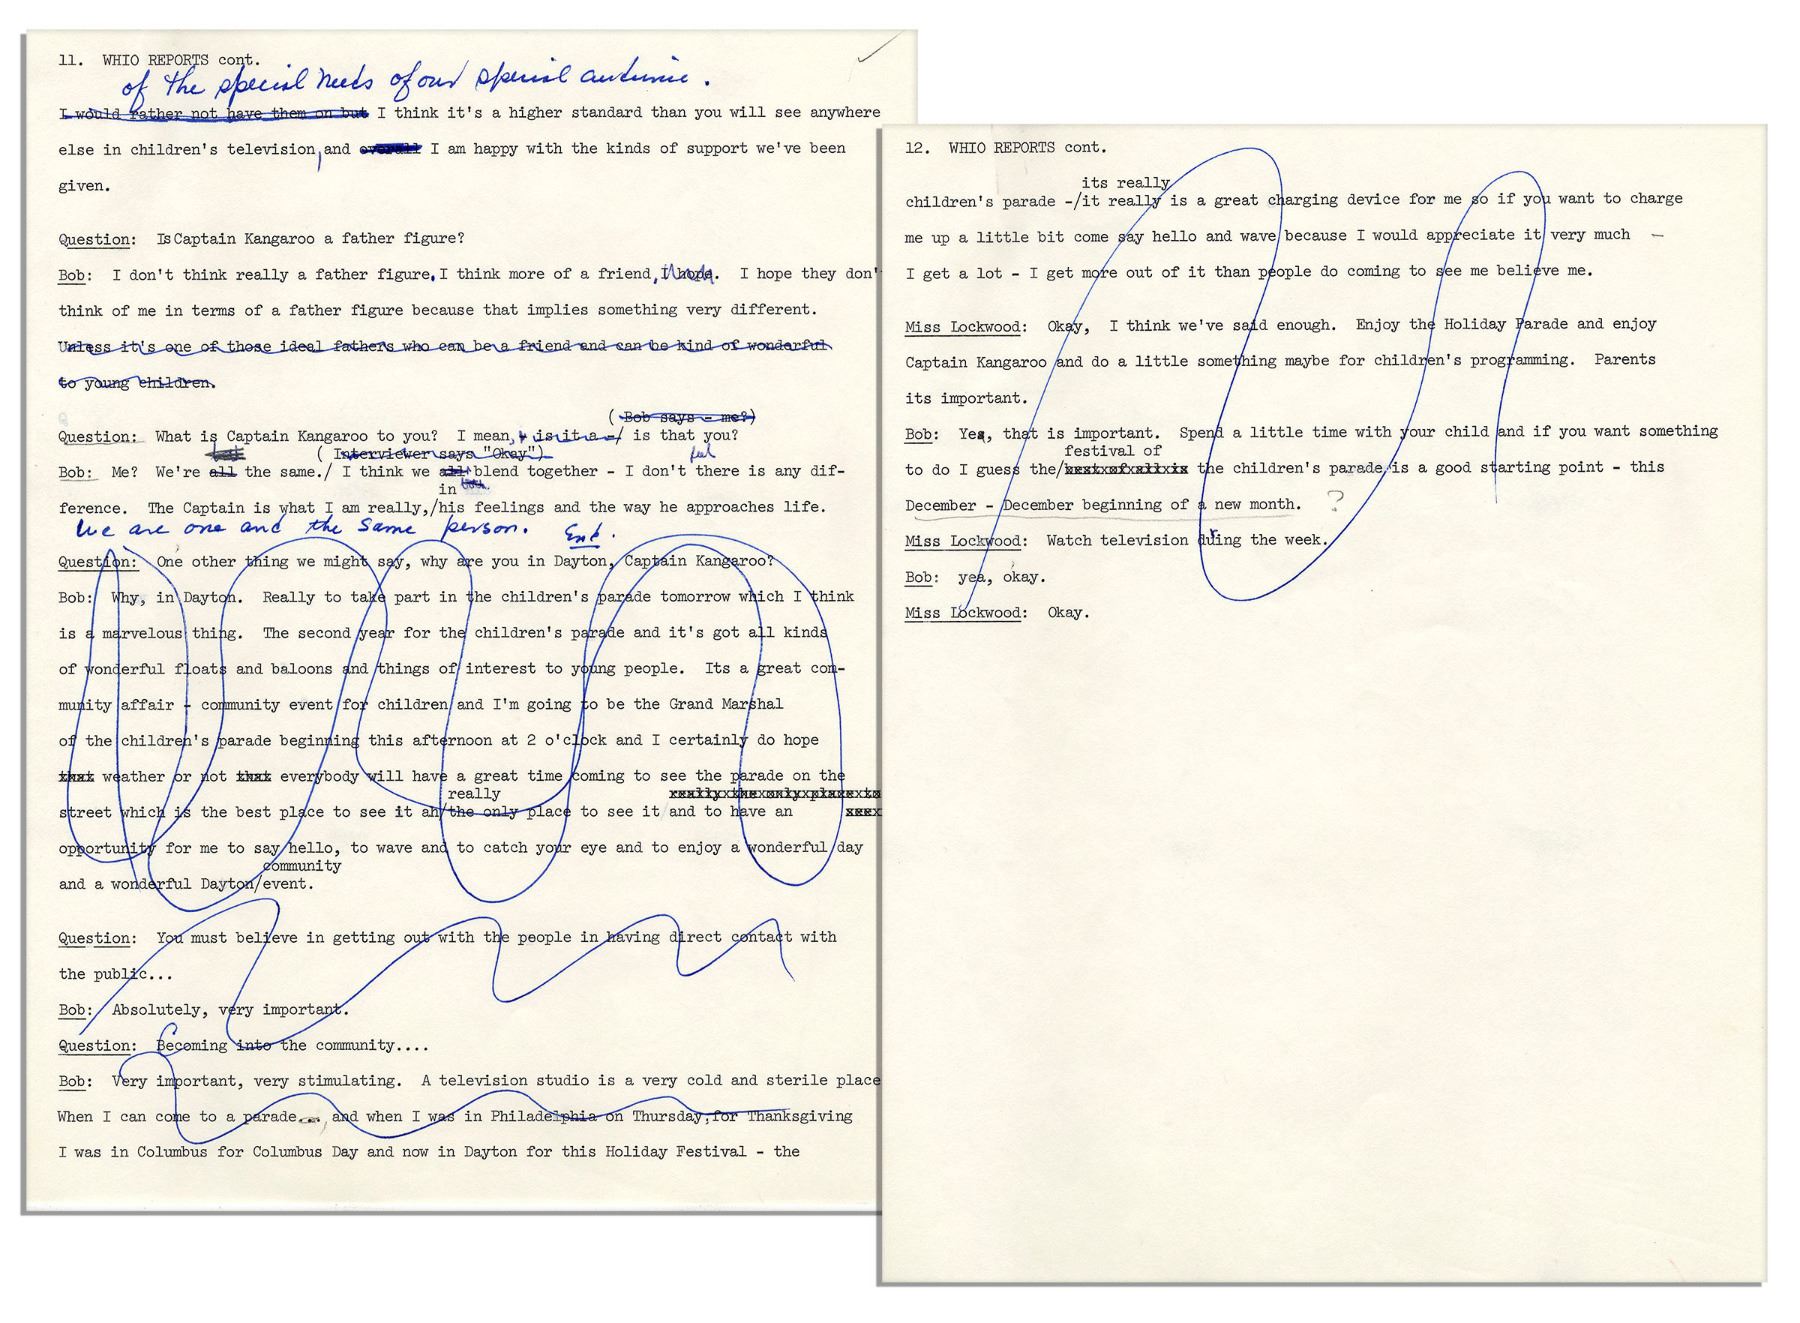 11.  WHIO REPORTS cont.
of the special needs of our special audience.
I would rather not have them on but I think it's a higher standard than you will see anywhere
else in children's television, and overall I am happy with the kinds of support we've been
given.
Question:  Is Captain Kangaroo a father figure?
Bob:  I don't think really a father figure. I think more of a friend, I hope.  I hope they don'
think of me in terms of a father figure because that implies something very different.
Unless it's one of those ideal fathers who can be a friend and can be kind of wonderful
to young children.
( Bob says - me?)
Question:  What is Captain Kangaroo to you?  I mean, is it a -/ is that you?
( Interviewer says "Okay")
Bob:  Me?  We're all the same./ I think we all blend together - I don't feel there is any dif-
in both
ference.  The Captain is what I am really,/his feelings and the way he approaches life.
We are one and the same person. End.
Question:  One other thing we might say, why are you in Dayton, Captain Kangaroo?
Bob:  Why, in Dayton.  Really to take part in the children's parade tomorrow which I think
is a marvelous thing.  The second year for the children's parade and it's got all kinds
of wonderful floats and baloons and things of interest to young people.  Its a great con-
munity affair - community event for children and I'm going to be the Grand Marshal
of the children's parade beginning this afternoon at 2 o'clock and I certainly do hope
that weather or not that everybody will have a great time coming to see the parade on the
really really the only place to
street which is the best place to see it ah/the only place to see it and to have an see
opportunity for me to say hello, to wave and to catch your eye and to enjoy a wonderful day
community
and a wonderful Dayton/event.
Question:  You must believe in getting out with the people in having direct contact with
the public...
Bob:  Absolutely, very important.
Question:  Becoming into the community....
Bob:  Very important, very stimulating.  A television studio is a very cold and sterile place
When I can come to a parade, and when I was in Philadelphia on Thursday, for Thanksgiving
I was in Columbus for Columbus Day and now in Dayton for this Holiday Festival - the
12.  WHIO REPORTS cont.
its really
children's parade -/it really is a great charging device for me so if you want to charge
me up a little bit come say hello and wave because I would appreciate it very much -
I get a lot - I get more out of it than people do coming to see me believe me.
Miss Lockwood:  Okay,  I think we've said enough.  Enjoy the Holiday Parade and enjoy
Captain Kangaroo and do a little something maybe for children's programming.  Parents
its important.
Bob:  Yes, that is important.  Spend a little time with your child and if you want something
festival of
to do I guess the/rest of all is the children's parade is a good starting point - this
December - December beginning of a new month. ?
Miss Lockwood:  Watch television during the week.
Bob:  yea, okay.
Miss Lockwood:  Okay.